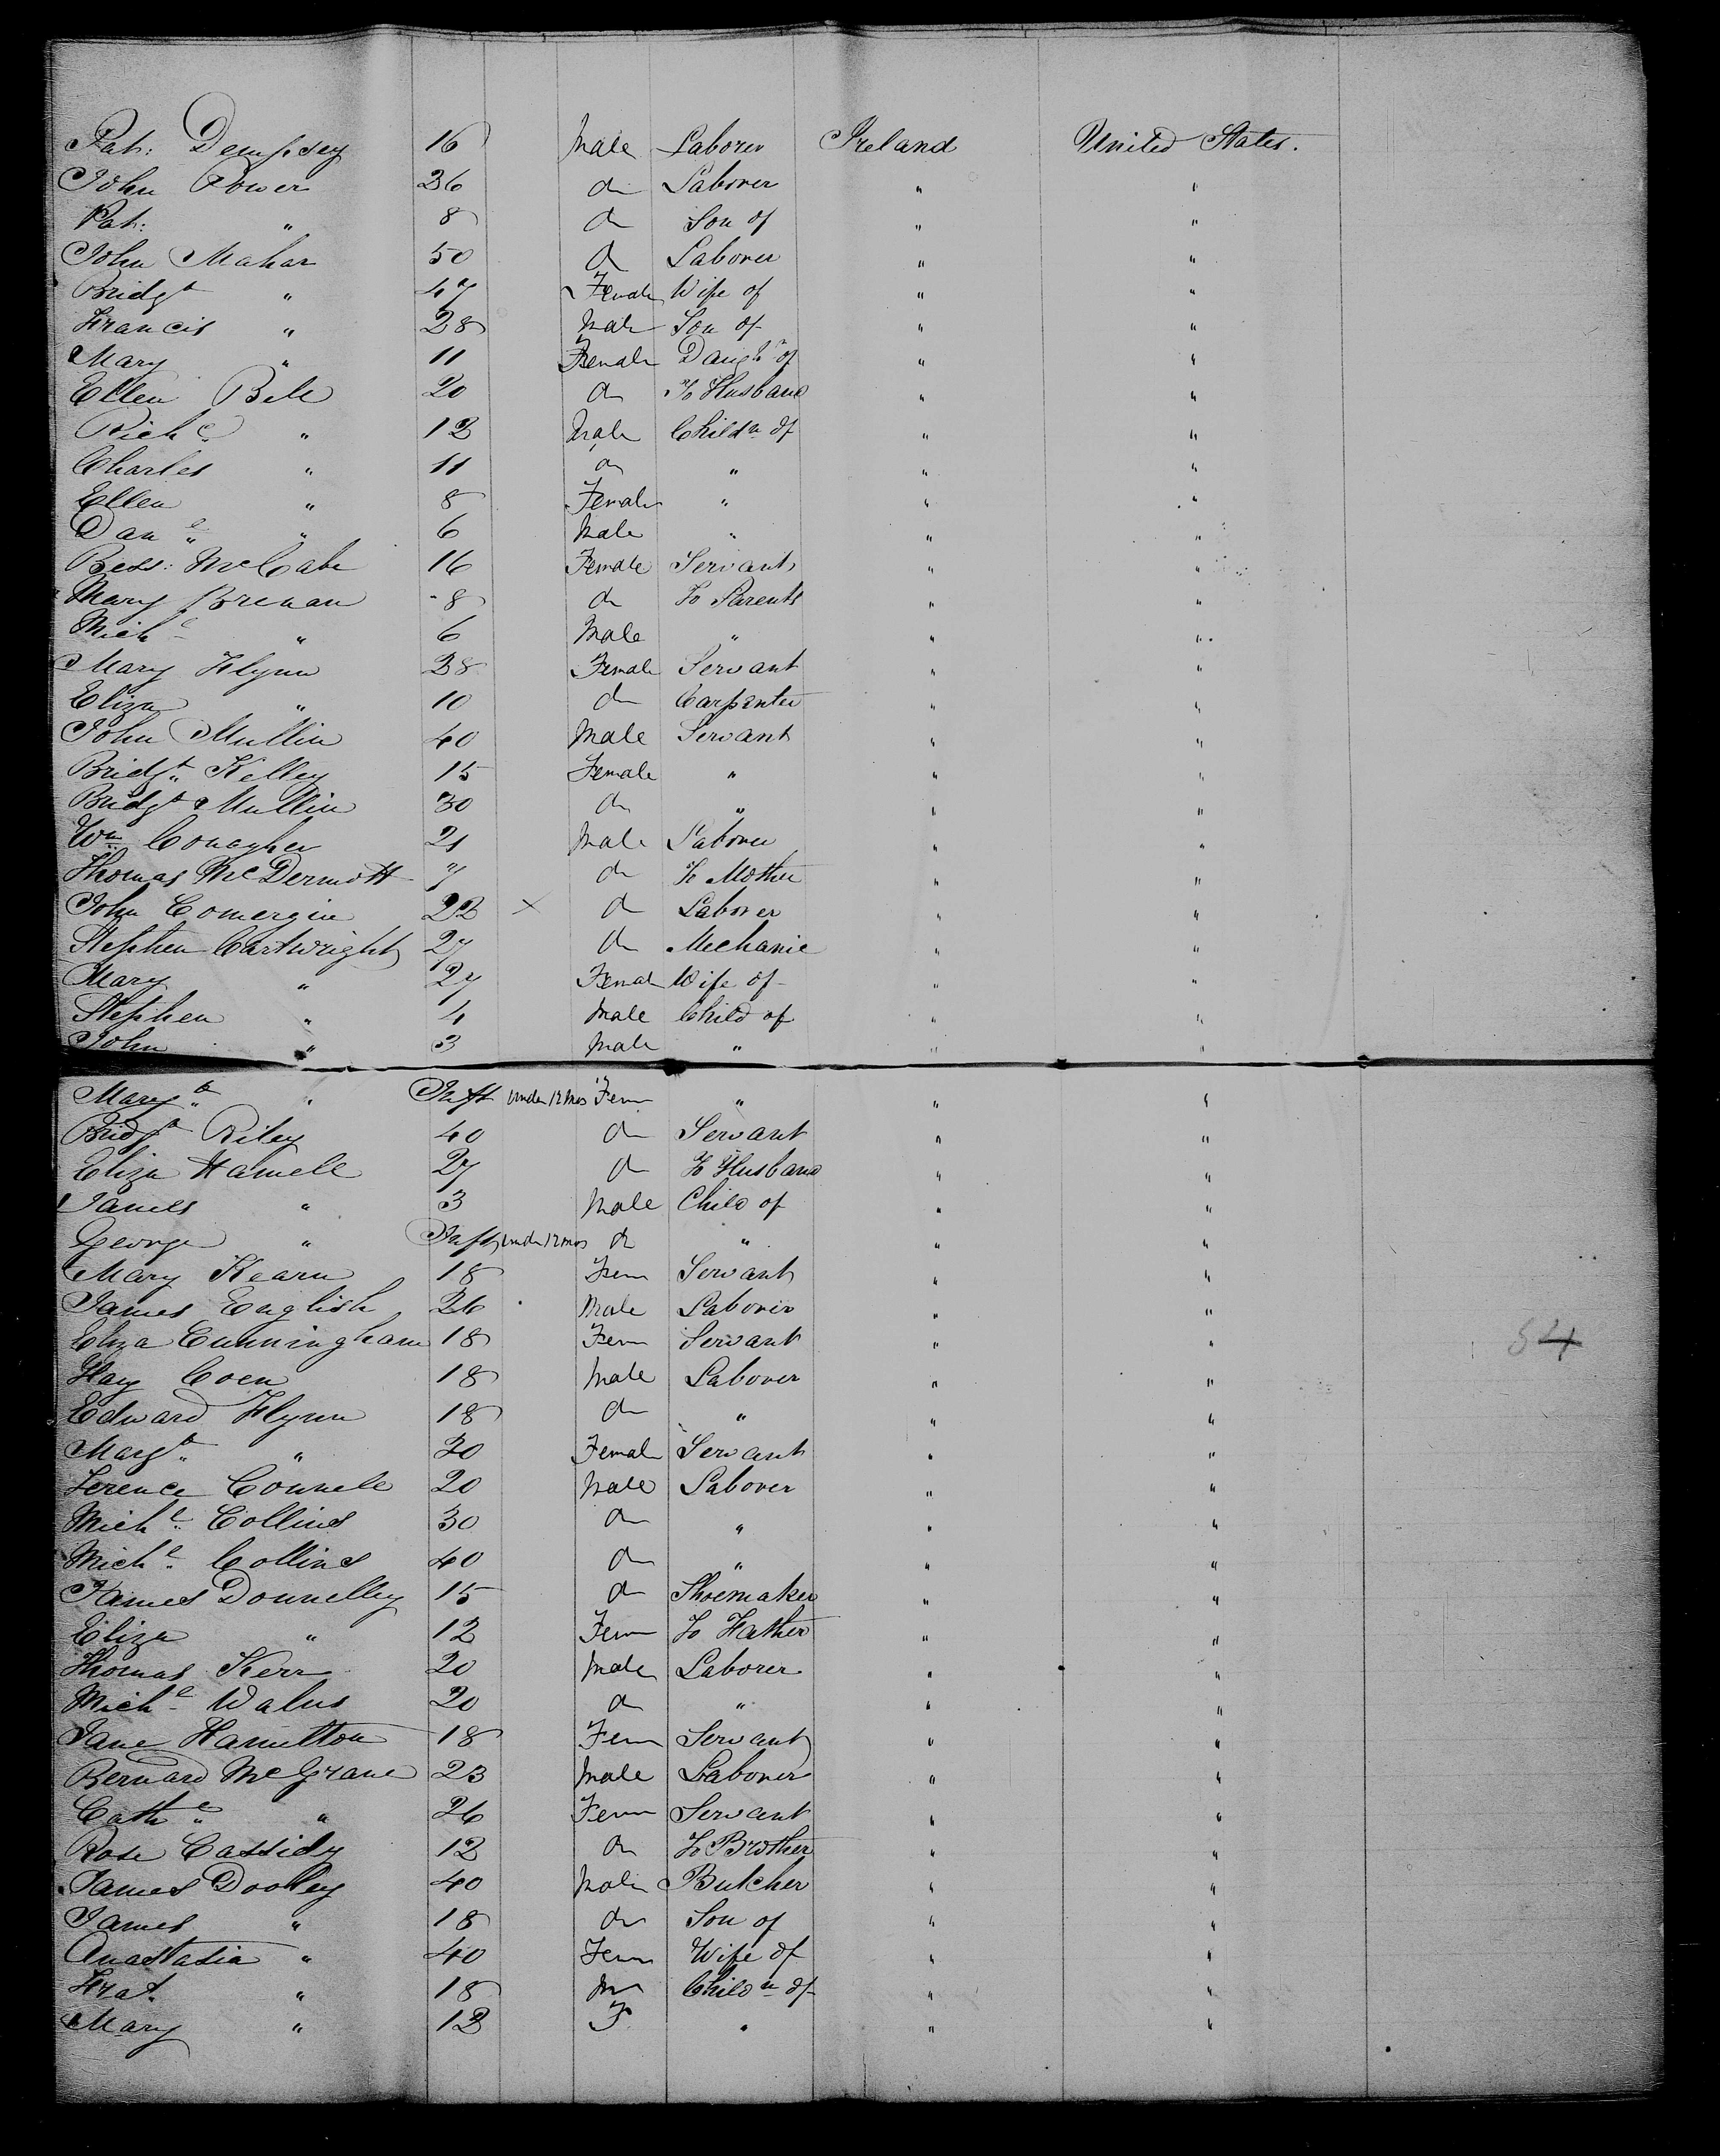 Pat: Dempsey 16 Male Laborer Ireland United States.
John Power 36 do Laborer " "
Pat: " 8 do Son of " "
John Mahar 50 do Laborer " "
Bridgt " 47 Female Wife of " "
Francis " 28 Male Son of " "
Mary " 11 Female Daughr of " "
Ellen Bell 20 do To Husband " "
Richd " 12 Male Childn of " "
Charles " 11 do " " "
Ellen " 8 Female " " "
Danl " 6 Male " " "
Bess: McCabe 16 Female Servant " "
Mary Brenan 8 do To Parents " "
Michl " 6 Male " " "
Mary Flynn 38 Female Servant " "
Eliza " 10 do Carpenter " "
John Mullin 40 Male Servant " "
Bridgt Kelley 15 Female " " "
Bridgt Mullin 30 do " " "
Wm Conagher 21 Male Laborer " "
Thomas McDermott 7 do To Mother " "
John Comergin 22 × do Laborer " "
Stephen Cartwright 27 do Mechanic " "
Mary " 27 Female Wife of " "
Stephen " 4 Male Child of " "
John " 3 Male " " "
Margt " Inft under 12 mos Fem " " "
Bridgt Riley 40 do Servant " "
Eliza Hamell 27 do To Husband " "
James " 3 Male Child of " "
George " Inft under 12 mos do " " "
Mary Kearn 18 Fem Servant " "
James English 26 Male Laborer " "
Eliza Cunningham 18 Fem Servant " "
54
Hay Coen 18 Male Laborer " "
Edward Flynn 18 do " " "
Margt " 20 Female Servant " "
Terence Connell 20 Male Laborer " "
Michl Collins 30 do " " "
Michl Collins 40 do " " "
James Donnelley 15 do Shoemaker " "
Eliza " 12 Fem To Father " "
Thomas Kerr 20 Male Laborer " "
Michl Walus 20 do " " "
Jane Hamilton 18 Fem Servant " "
Bernard McGrane 23 Male Laborer " "
Cathe " 26 Fem Servant " "
Rose Cassidy 12 do To Brother " "
James Dooley 40 Male Butcher " "
James " 18 do Son of " "
Anastasia " 40 Fem Wife of " "
Frat. " 18 M Childn of " "
Mary " 12 F " " "